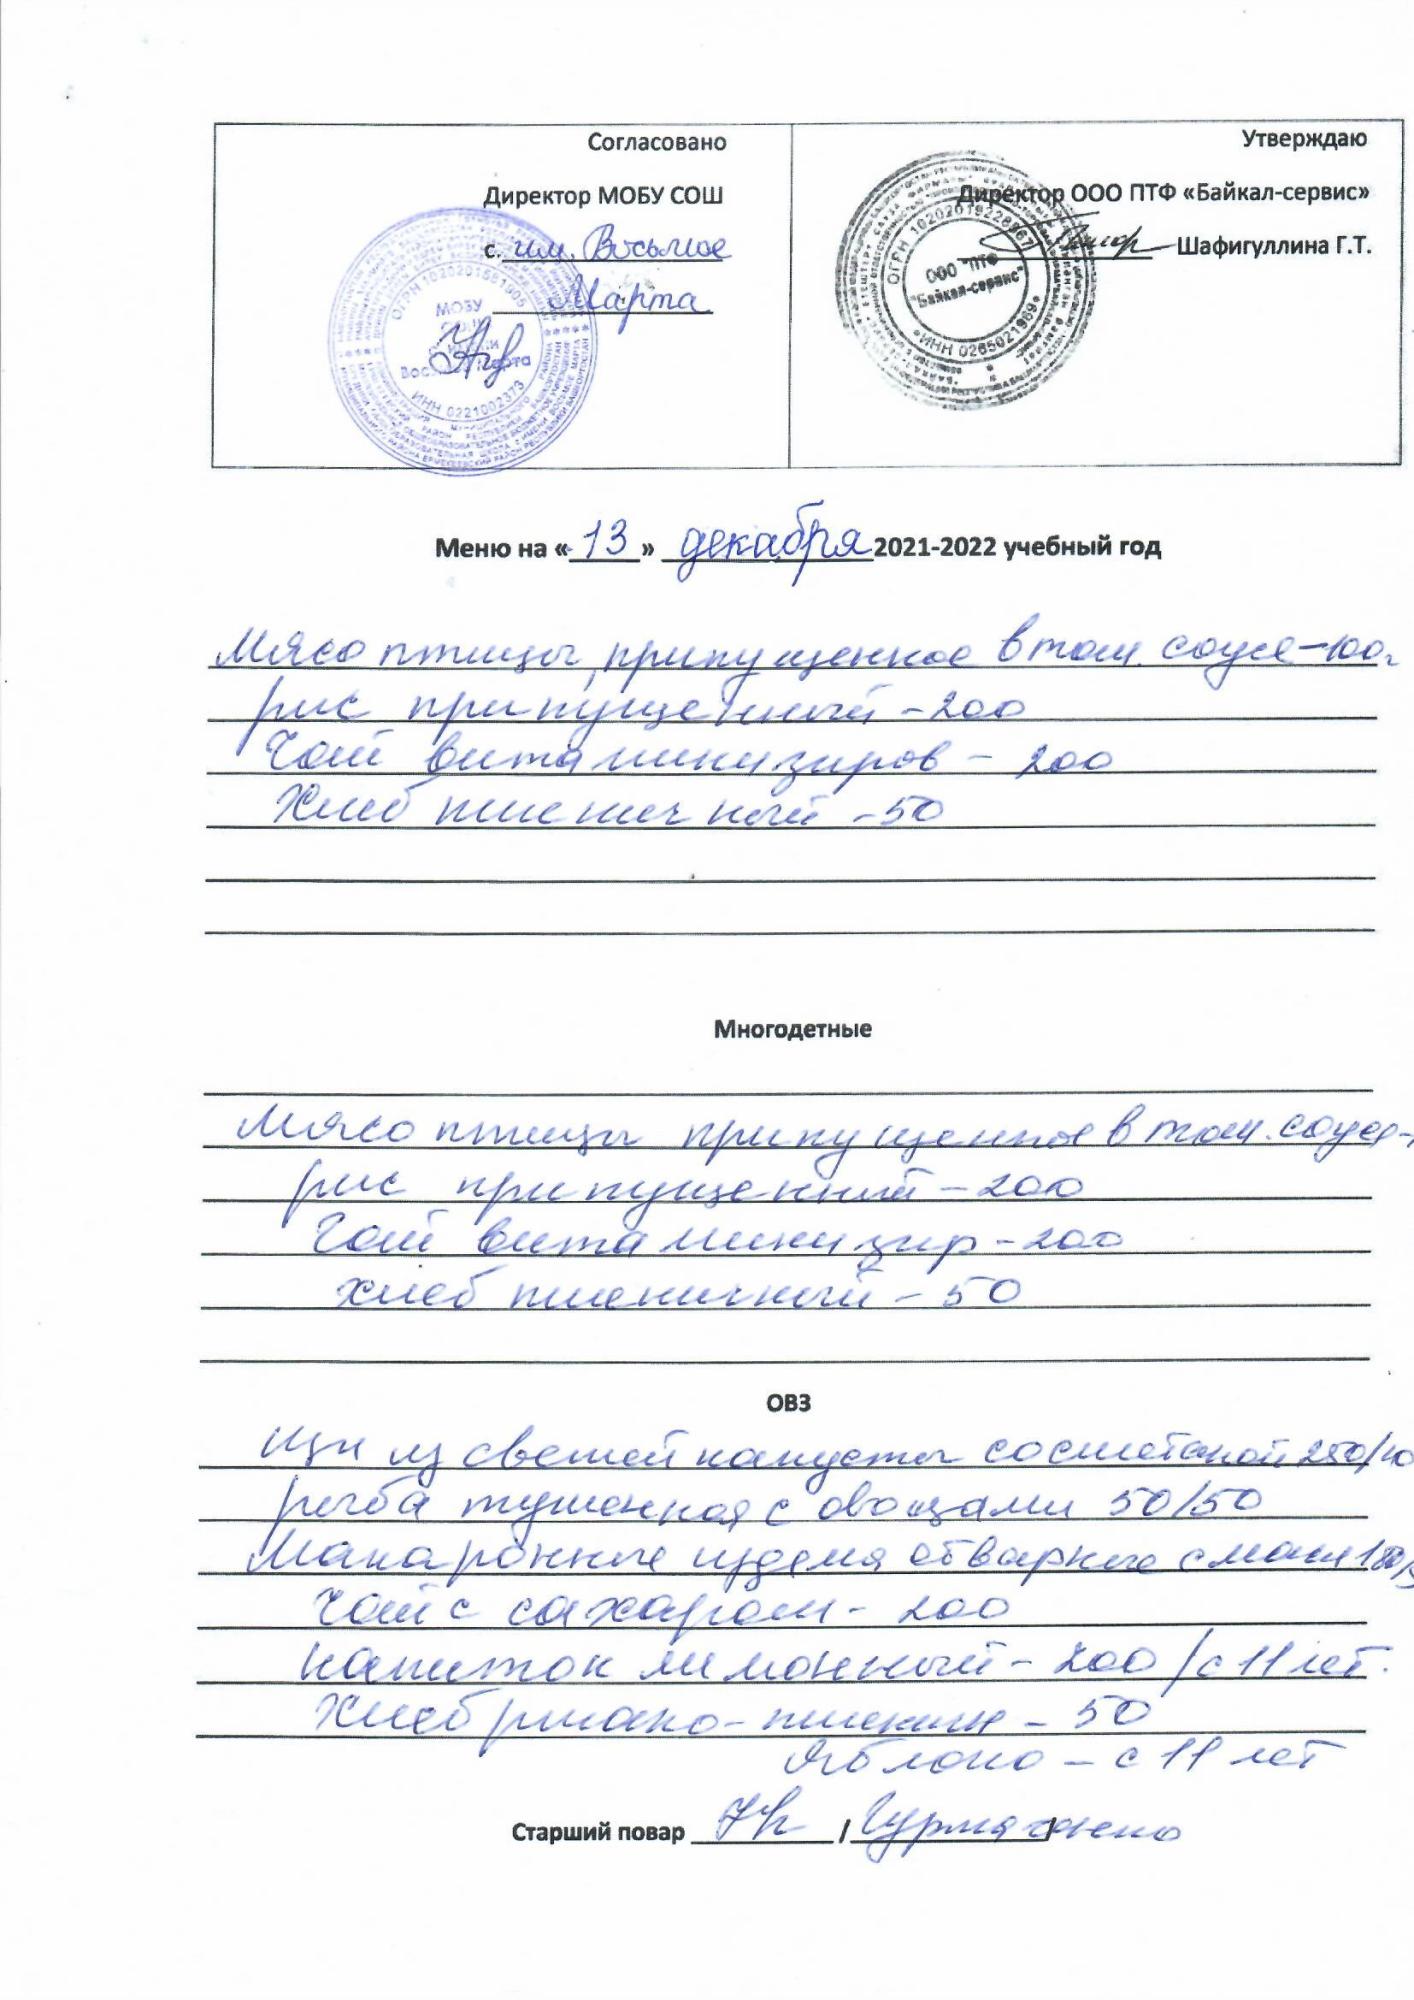 Согласовано
Директор МОБУ СОШ
с. им. Восьмое
Марта
Утверждаю
Директор ООО ПТФ «Байкал-сервис»
Шафигуллина Г.Т.
ОГРН
МОБУ
СОШ
Восьмое Марта
ИНН 0221002373
ОГРН
ООО "ПТФ
"Байкал-сервис"
ИНН 0265021969
Меню на «13» декабря 2021-2022 учебный год
Мясо птицы, припущенное в том. соусе-100г
рис припущенный - 200
Чай витаминизиров - 200
Хлеб пшеничный - 50
Многодетные
Мясо птицы припущенное в том. соусе-
рис припущенный - 200
Чай витаминизир - 200
хлеб пшеничный - 50
ОВЗ
Щи из свежей капусты со сметаной 250/10
рыба тушенная с овощами 50/50
Макаронные изделия отварные с масл 180/5
Чай с сахаром - 200
напиток лимонный - 200 / с 11 лет.
Хлеб ржано-пшенич - 50
Яблоко - с 11 лет
Старший повар / /